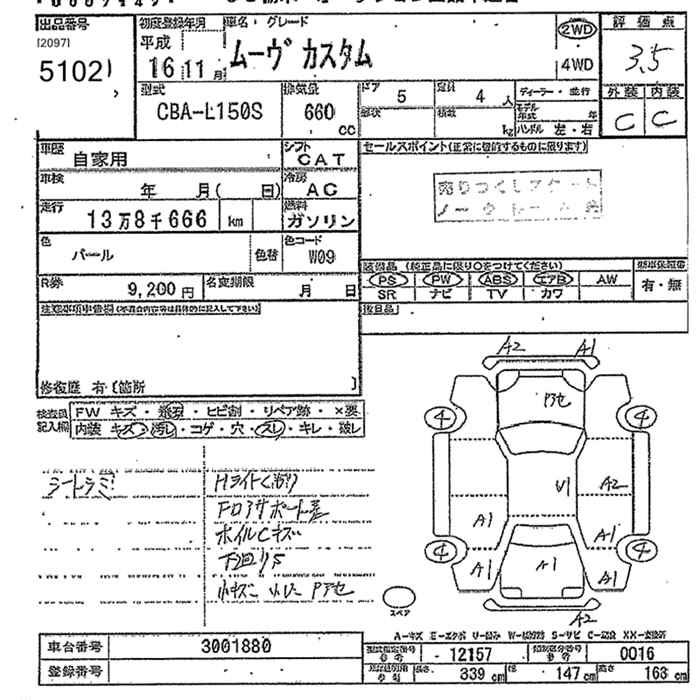 出品番号 初度登録年月 車名・グレード 評価点
[2097] 平成 ムーヴ カスタム 2WD 3.5
5102 16 11月 4WD
型式 排気量 ドア 5 定員 4人 ディーラー・並行 外装 内装
CBA-L150S 660 cc 形状 積載 kg モデル年式 年 C C
ハンドル 左・右
車歴 自家用 シフト CAT セールスポイント(正常に登録するものに限ります)
車検 年 月( 日) 冷房 AC
走行 13万8千666 km 燃料 ガソリン
色 パール 色替 色コード W09
装備品 (純正品に限り○をつけてください)
R券 9,200円 名変期限 月 日 PS PW ABS エアB AW 有・無
SR ナビ TV カワ
修復歴 有〔箇所 〕
検査員 FW キズ・亀裂・ヒビ割・リペア跡・×要
記入欄 内装 キズ・汚レ・コゲ・穴・スレ・キレ・破レ
A2 A1
4 4
U1 A2
A1 A1
4 4
A1 A1 A1
A2
シートシミ Hライトくもり
Fロアサポート
ホイルCキズ
下回りS
スペア
A-キズ E-エクボ U-凹み S-サビ
車台番号 3001880 型式指定番号 12157 類別区分番号 0016
登録番号 長さ 339 cm 幅 147 cm 高さ 163 cm